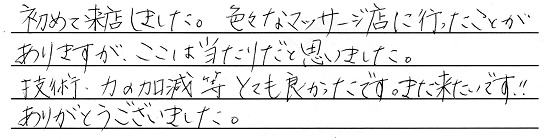 初めて来店しました。色々なマッサージ店に行ったことが
ありますが、ここは当たりだと思いました。
技術・力の加減等とても良かったです。また来たいです!!
ありがとうございました。